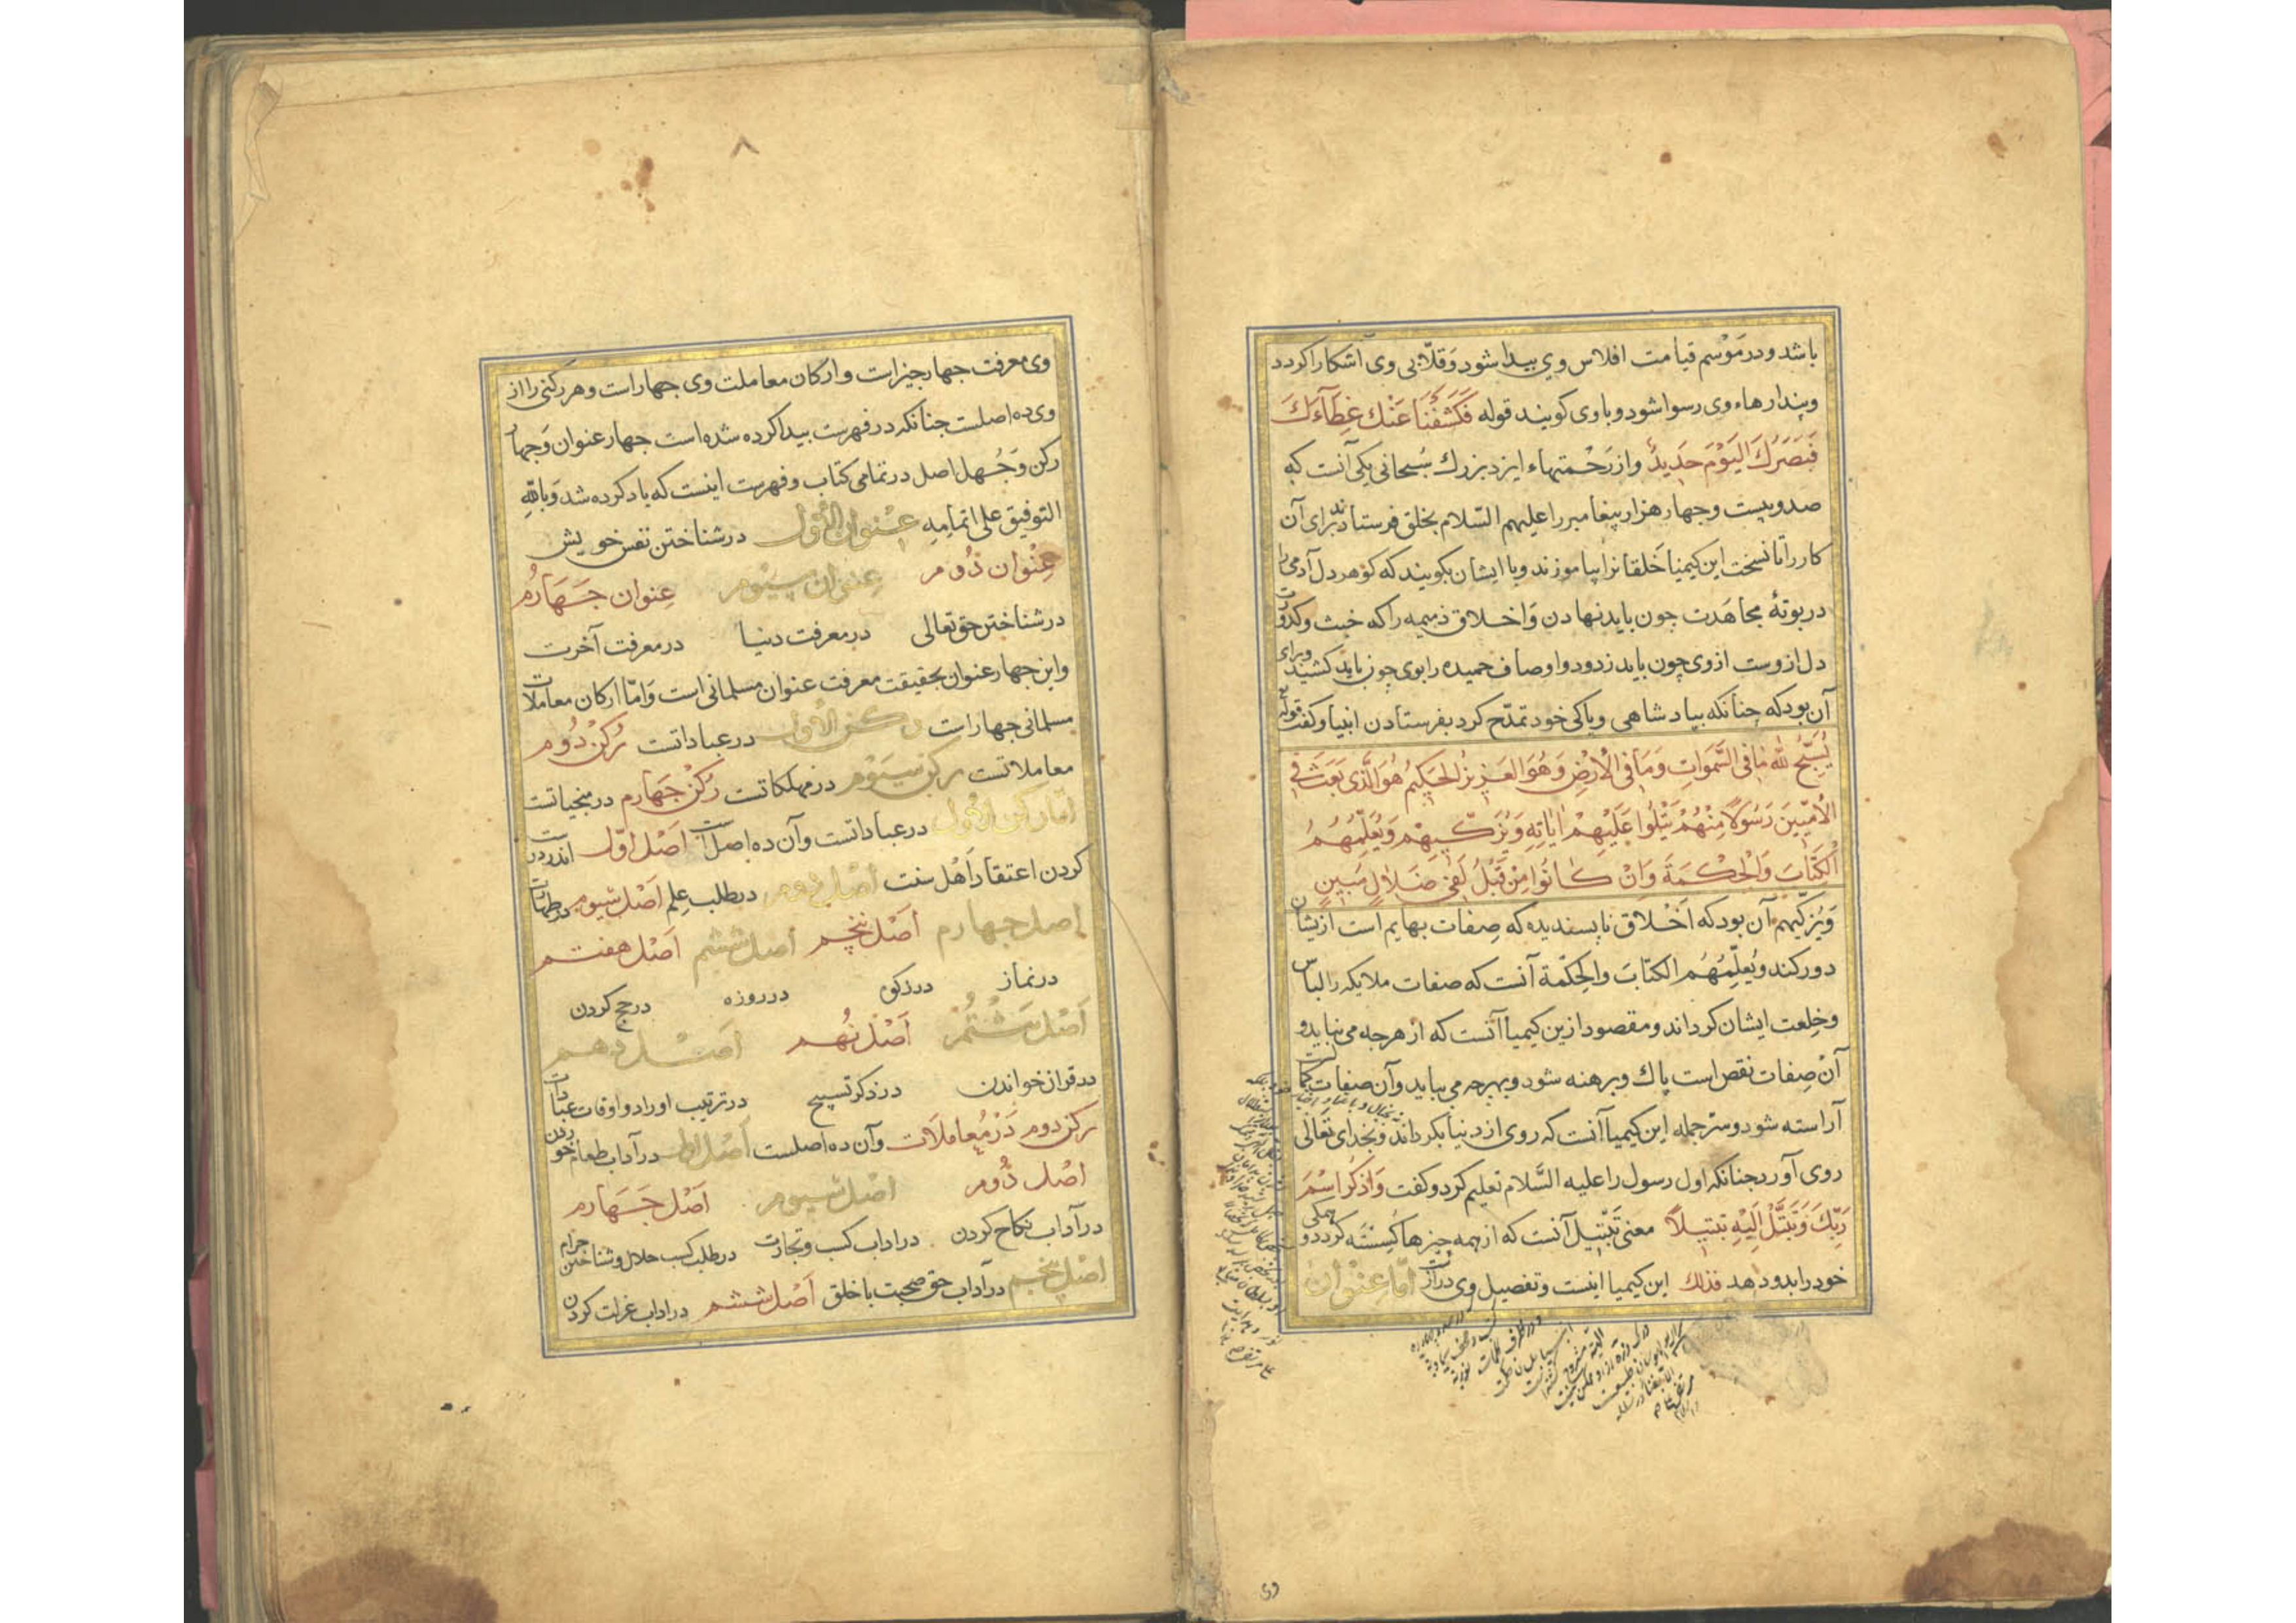 باشد و در مَوْسم قیامت افلاس وی بیدا شود وَ قلّابی وی آشکارا کردد
و پندارهاء وی رسوا شود و با وی کویند قوله فَكَشَفْنَا عَنْكَ غِطَآءَكَ
فَبَصَرُكَ الْيَوْمَ حَدِيدٌ و از رَحْمتهاء ایزد بزرك سُبحانی یکی آنست که
صد و بیست و چهار هزار پیغامبر را علیهم السّلام بخلق فرستادند برای آن
کار را تا نسخت این کیمیا خَلقانرا بیاموزند و با ایشان بکویند که کوهر دل آدمی را
در بوتهٔ مجاهَدت چون باید نهادن وَ اخلاق ذمیمه را که خبث و کدورت
دل ازوست از وی چون باید زدود و اوصاف حمیده را بوی چون باید کشید و برای
آن بود که چنانکه بپادشاهی و پاکی خود تمدّح کرد بفرستادن انبیا و کفت قوله
يُسَبِّحُ لِلّٰهِ مَا فِی السَّمَوَاتِ وَمَا فِی الْاَرْضِ وَهُوَ الْعَزِيزُ الْحَكِيمُ هُوَ الَّذِی بَعَثَ فِی
الْاُمِّيِّينَ رَسُولًا مِنْهُمْ يَتْلُوا عَلَيْهِمْ اٰيَاتِهِ وَيُزَكِّيهِمْ وَيُعَلِّمُهُمُ
الْكِتَابَ وَالْحِكْمَةَ وَاِنْ كَانُوا مِنْ قَبْلُ لَفِی ضَلَالٍ مُبِينٍ
وَ یُزکّیهم آن بود که اَخْلاق ناپسندیده که صِفات بهایم است ازیشان
دور کند و یُعلّمُهُم الکتابَ والحِکمَة آنست که صفات ملایکه را لباس
و خِلعت ایشان کرداند و مقصود ازین کیمیا آنست که از هرچه می نباید و
آن صِفات نقص است پاك و برهنه شود و بهرچه می بباید و آن صفات کمالست
آراسته شود و سَر جمله این کیمیا آنست که روی از دنیا بکرداند و بخدای تعالی
روی آورد چنانکه اول رسول را علیه السَّلام تعلیم کرد و کفت وَاذْكُرِ اسْمَ
رَبِّكَ وَتَبَتَّلْ اِلَيْهِ تَبْتِيلًا معنی تَبْتِیل آنست که از همه چیزها کُسِسته کردد و همکی
خود را بدو دهد فذلك این کیمیا اینست و تفصیل وی درازست امّا عِنْوان
وی
وی معرفت چهار چیز است و ارکان معاملت وی چهار است و هر رکنی را از
وی ده اصلست چنانکه در فهرست بیدا کرده شده است چهار عنوان وَ چهار
رکن وَ چُهل اصل در تمامی کتاب و فهرست اینست که یاد کرده شد وَ باللّٰهِ
التوفیق علی اتمامِهِ عِنْوان الْاوّل در شناختن نفس خویش
عِنْوان دُوم عِنوان سیّوم عِنوان جَهَارُم
در شناختن حق تعالی در معرفت دنیا در معرفت آخرت
و این چهار عنوان بحقیقت معرفت عنوان مسلمانی است وَ امّا ارکان معاملات
مسلمانی چهار است رکن الاوّل در عباداتست رُکْن دُوم
معاملاتست رکن سیّوم در مهلکاتست رُکن جَهَارم در منجیاتست
امّا رکن الاوّل در عباداتست و آن ده اصل است اَصْل اوّل اندر درست
کردن اعتقاد اَهْل سنت اصل دوم در طلب عِلم اَصْل سیوم در طهارت
اصل چهارم اَصْل پنجم اَصل ششم اَصْل هفتم
در نماز در زکوة در روزه در حج کردن
اَصْل هشتم اَصْل نُهم اَصْل دهم
در قران خواندن در ذکر تسبیح در ترتیب اوراد و اوقات عبادات
رکن دوم دَرْ مُعاملَات و آن ده اصلست اَصل اوّل در آداب طعام خوردن
اصْل دُوم اصْل سیوم اَصْل جَهَارم
در آداب نکاح کردن در اداب کسب و تجارت در طلب کسب حلال و شناختن حرام
اصل پنجم در آداب حق صحبت با خلق اَصْل ششم در اداب عزلت کردن